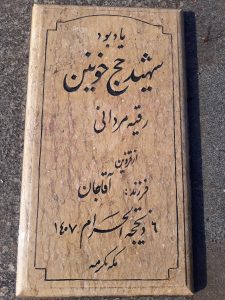 یادبود
شهید حج خونین
رقیه مردانی
از قزوین
فرزند: آقاجان
۶ ذیحجة الحرام ۱۴۰۷
مکه مکرمه